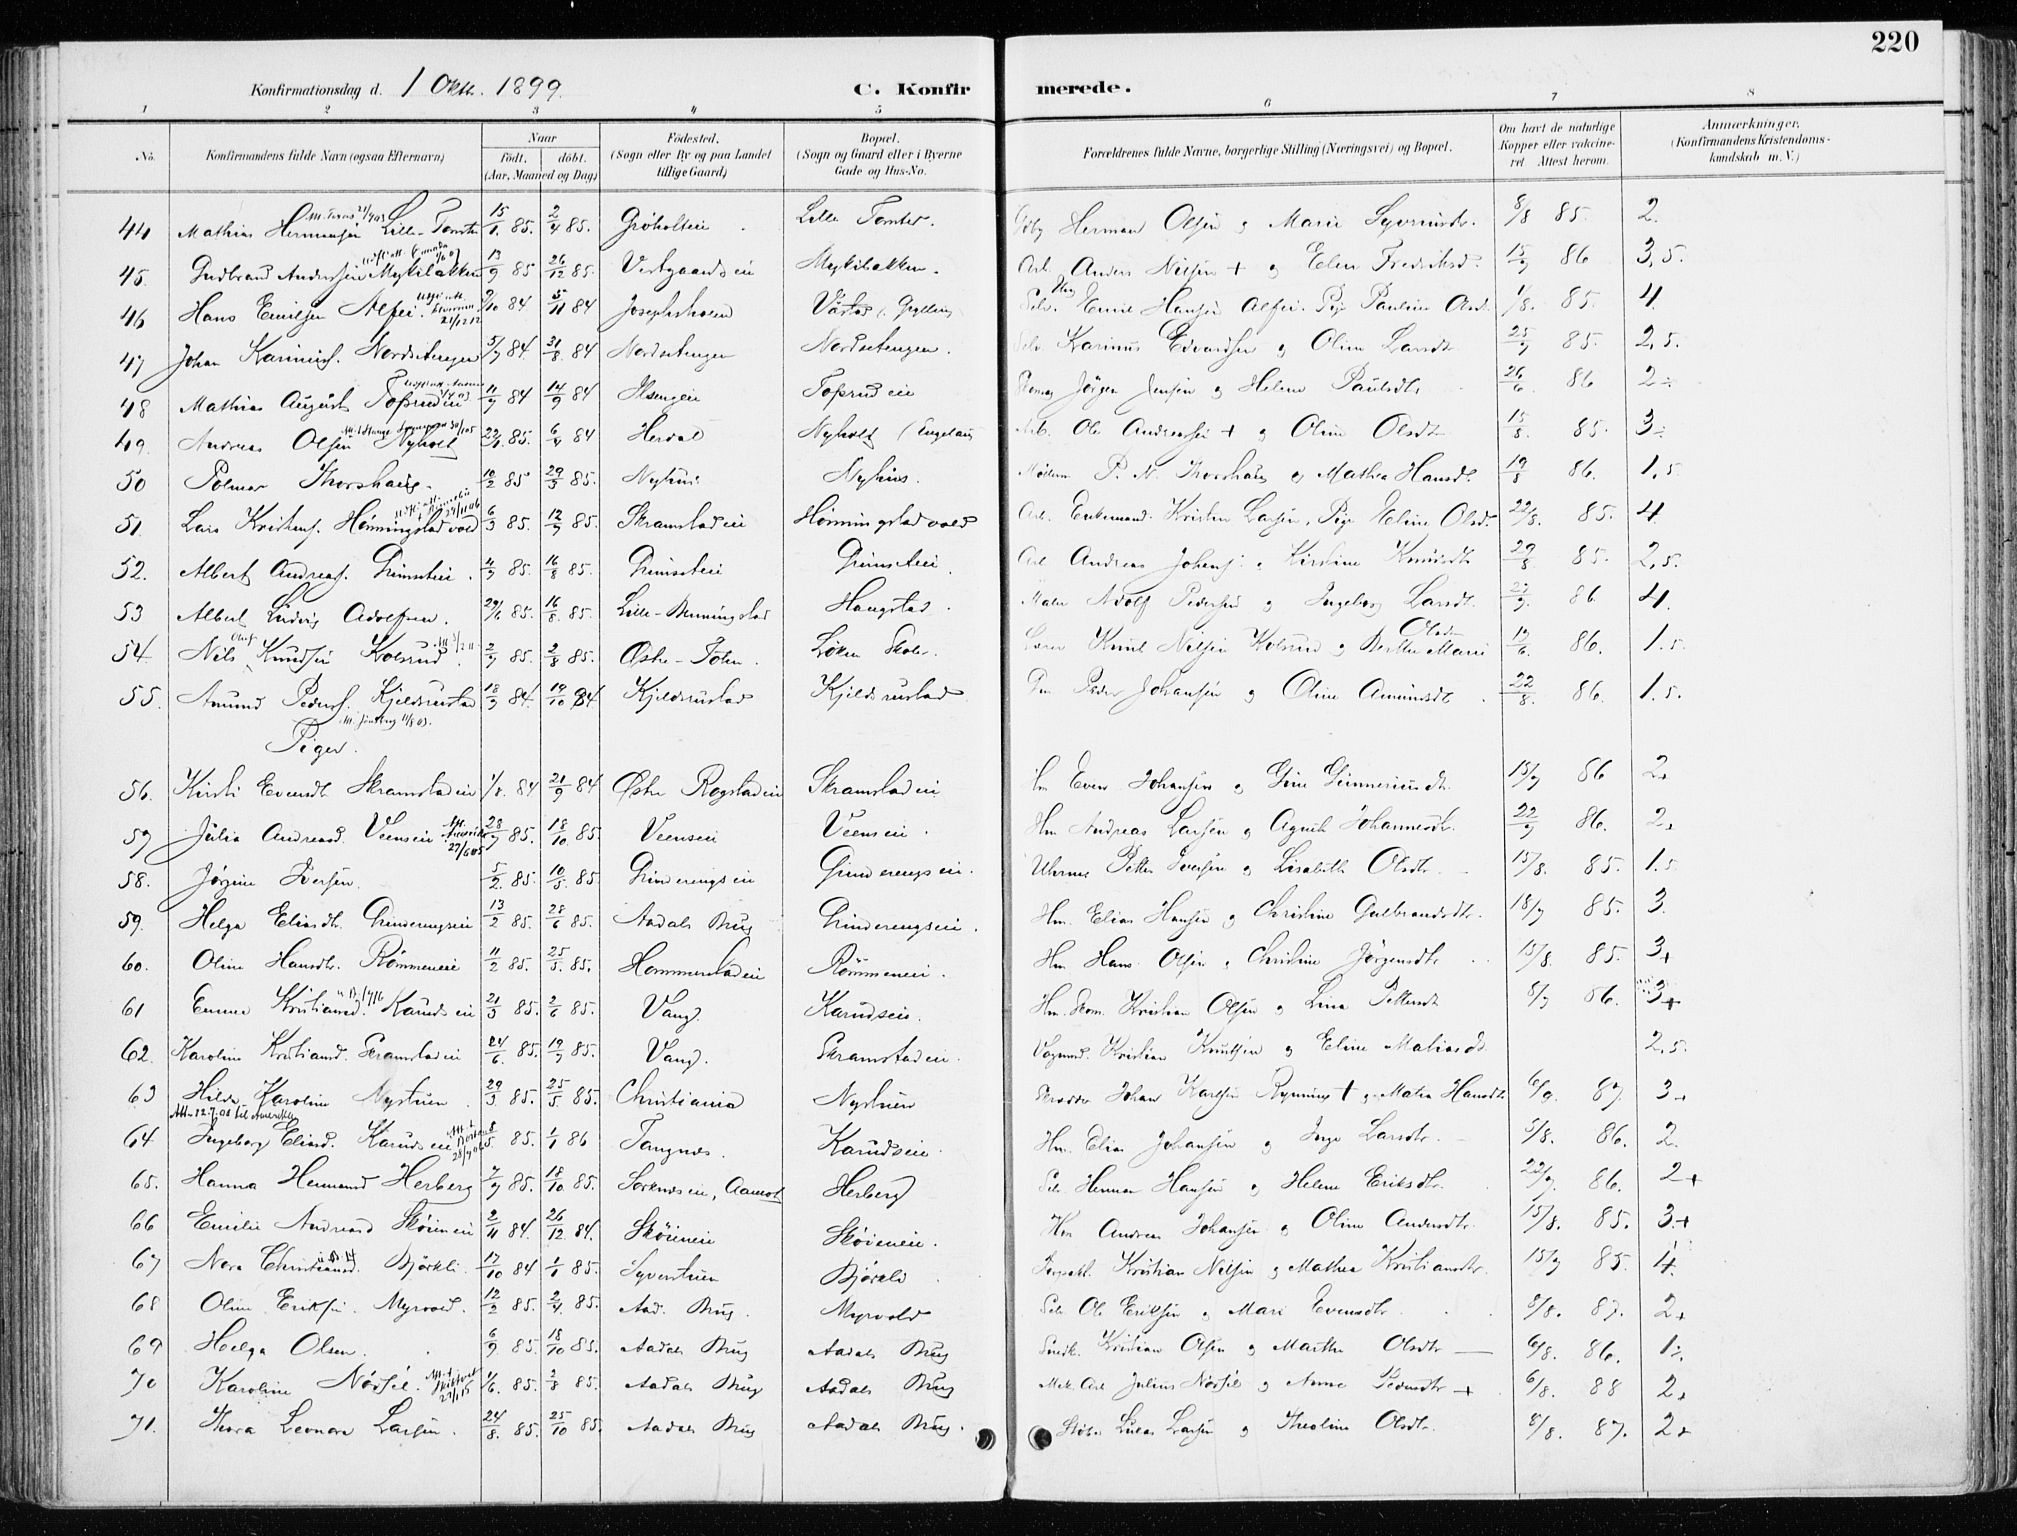 220
Konfirmationsdag d. 1 Oktr. 1899. C. Konfirmerede.
1 2 3 4 5 6 7 8
No. Konfirmandens fulde Navn (ogsaa Efternavn) Naar født. døbt. (Aar, Maaned og Dag) Födested. (Sogn eller By og paa Landet tillige Gaard) Bopæl. (Sogn og Gaard eller i Byerne Gade og Hus-No. Forældrenes fulde Navne, borgerlige Stilling (Næringsvei) og Bopæl. Om havt de naturlige Kopper eller vakcineret Attest herom. Anmærkninger, (Konfirmandens Kristendomskundskab m. V.)
44 Mathias Hermansen Lille-Tomter 15/1 85. 2/4 85. Grøholteie Lille Tomter. Herman Olsen og Marie Syversdtr. 8/8 85. 2.
45. Gudbrand Andersen Myklebakken 13/9 85 26/12 85. Vestgaardseie Myklibakken. Arb. Anders Nilsen + og Eline Fredriksd. 15/9 86 3,5.
46 Hans Emilsen Alfei. 9/10 84 5/11 84 Josephsholm Emil Hansen Alfei. Pige Pauline 1/8. 85. 4.
47 Johan Karinius. Nordsetengen 5/7 84. 31/8. 84 Nordsetengen Nordsetengen. Karinus Edvardsen og Oline Larsdtr 25/9 85. 2,5.
48 Mathias August Tofsrudeie 11/7 84 14/9 84 Ilsengeie Tofsrudeie Jörgen Jensen og Helene Paulsdtr 26/6 86 2÷
49. Andreas Olsen Nyholt 85. 84 Herdal Nyholt Arb. Ole Andreasen + og Oline Olsdtr 15/8. 85. 3÷
50 Polmar Thorshaug. 10/2 85 29/3 85. Nyhus Nyhus. P. N. Thorshaug og Mathea Hansdt. 19/8 86. 1,5.
51. Lars Kristens. Hönningstadvold 6/3 85. 12/7 85. Skramstadeie Hönningstadvold Arb. Enkemand Kristen Larsen, Pige Eline Olsdt. 22/8. 85. 4
52. Albert Andreas. Grimsteie. 4/7 85. 16/8 85. Grimsteie Grimsteie. Arb Andreas Johans. Kirstine Knudsdt 29/8 85. 2,5.
53 Albert Ludvig Adolfsen. 29/6 85. 16/8. 85. Lille-Benningstad Haugstad. Maler Adolf Pedersen og Ingeborg Larsdt. 86. 4.
54 Nils Olaf Knudsen Kolsrud. 2/7 85. 2/8 85. Østre-Toten. Løken Skole. Lærer Knut Nilsen Kolsrud og Berthe Marie Olsdtr 19/6. 86. 1.5
55. Amund Peders. Kjeldsrustad 18/9 84. 19/10 84 Kjeldsrustad Kjeldsrustad Peder Johansen og Oline Amundsdt. 22/8. 86. 1.5.
Piger.
56. Kirsti Evensdt Skramstadeie 1/8. 84 21/9 84 Østre Rogstadeie Skramstadeie Even Johansen og Gine Gunneriusdtr. 15/9 86 2+
57 Julia Andreasd. Veenseie Att. Amerika 27/6 05 28/7 85. 18/10. 85. Veenseie Veenseie. Hm. Andreas Larsen og Agnete Johannesdtr. 22/9 86. 2+
58. Jörgine Iversen. 5/2. 85. 10/5. 85 Grinderengseie Grinderengseie. Petter Iversen og Lisabeth Olsdtr. 15/8. 85. 1.5
59. Helga Eliasdtr. Grinderengseie 13/2 85. 28/6 85. Aadals Brug Grinderengseie. Hm. Elias Hansen og Christine Gulbrandsdtr. 18/7 85. 3.
60. Oline Hansdtr. Römmeneie 11/2 85. 25/5. 85. Hommerstadeie Römmeneie. Hm Hans Olsen og Christine Jörgensdtr 15/8. 85. 3+
61 Emma Kristiansd. Karudseie 21/3 85. 2/6 85. Vang. Karudseie. Hm. Skom. Kristian Olsen og Lina Pettersdt 8/7 86. 3+
62. Karoline Kristiansd. Skramstadeie 24/6 85. 19/7 85. Vang. Skramstadeie. Kristian Knutsen og Eline Matiasdt. 2,5.
63 Hilda Karoline Nystuen. 29/3 85. 25/5 85. Christiania Nystuen Skrædder Johan Karlsen Rynning + og Matea Hansdtr 6/9. 87. 3+
Att. 12.7.01 til Amerika
64. Ingeborg Eliasd. Karudseie 85. 1/1 86 Tangnes. Karudseie. Hm. Elias Johansen og Inge Larsdtr. 5/8. 86. 2.
65. Hanna Hermansd Herberg 7/7 85. 18/10 85. Sorknæseie, Aamot Herberg Herman Hansen og Helene Eriksdtr. 22/7. 86. 2+
66 Emilie Andreasd Skøieneie 2/11 84. 26/12. 84. Skøieneie Skøieneie. Hm Andreas Johansen og Oline Andersdtr. 15/8. 85. 3+
67 Nora Christiansd. Bjørkli. 17/10 84 1/1 85. Syverstuen Bjørkli Kristian Nilsen og Mathea Kristiansdtr. 15/7 85. 4.
68 Oline Eriksen Myrvold. 12/2 85. 2/4. 85. Aad. Brug. Myrvold Ole Eriksen og Mari Evensdtr 8/8. 87. 2+
69 Helga Olsen. 6/9 85. 18/10 85. Aadals Brug Aadals Brug Kristian Olsen og Marthe Olsdtr 6/8. 86. 1÷
70 Karoline Nörfil. 1/6. 85. 2/8 85. Aadals Brug Aadals Brug Mek. Arb. Julius Nörfil og Anne Pedersdtr + 6/8. 88 2+
71. Thora Leonora Larsen. 24/8. 85. 25/10 85. Aadals Brug Aadals Brug. Støber Lukas Larsen og Theoline Olsdtr. 8/8. 87. 2+